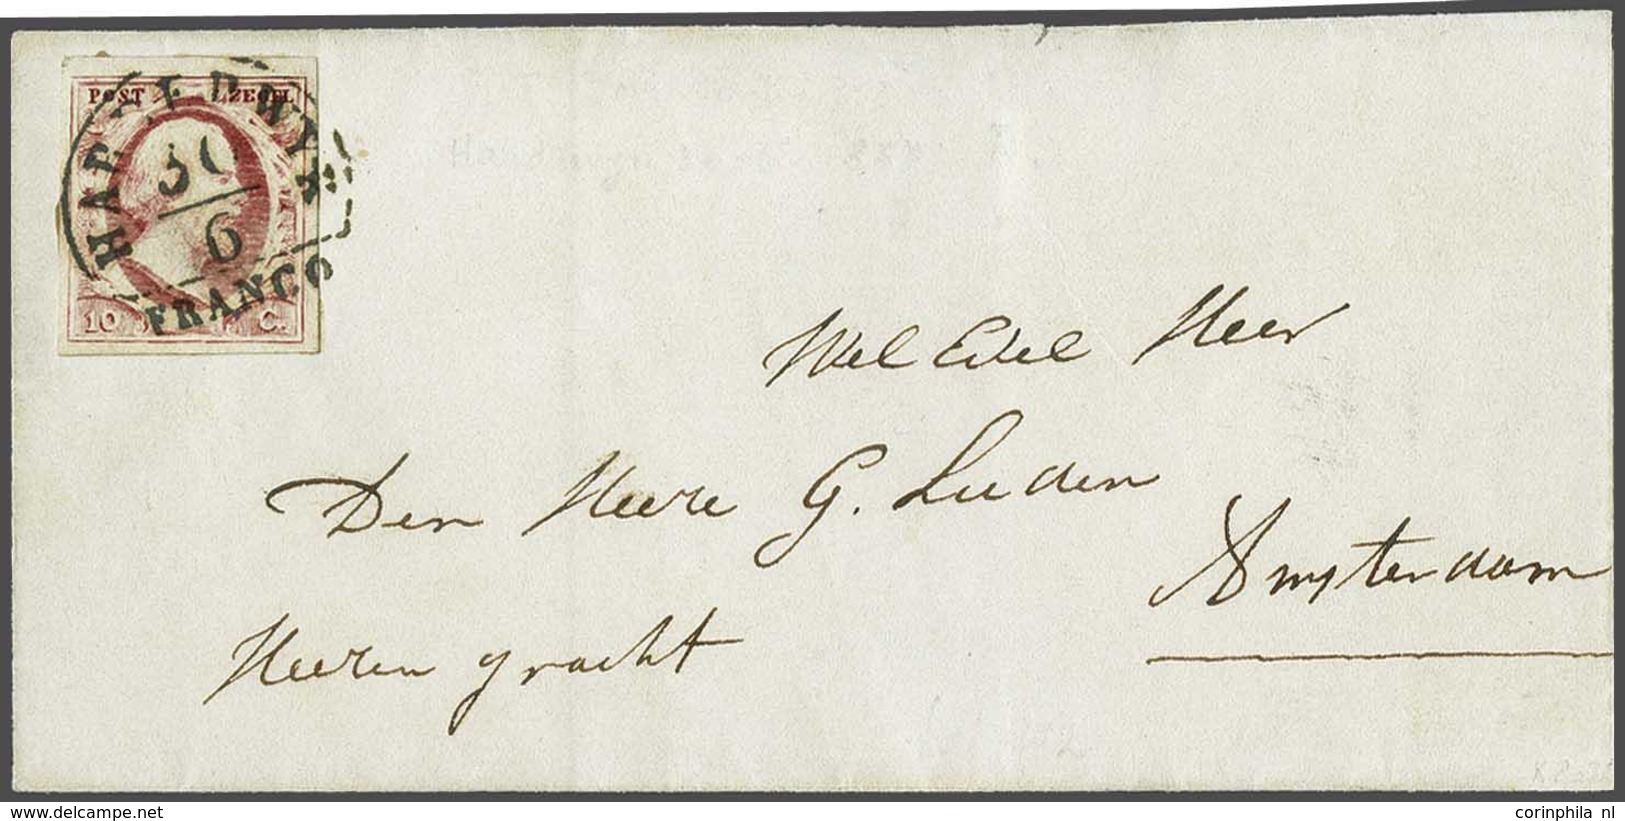 POST ZEGEL
HARDERDWYK
30
6
FRANCO
10 C.
Wel Edel Heer
Den Heere G. Luden
Amsterdam
Heeren gracht
www.delcampe.net
corinphila nl